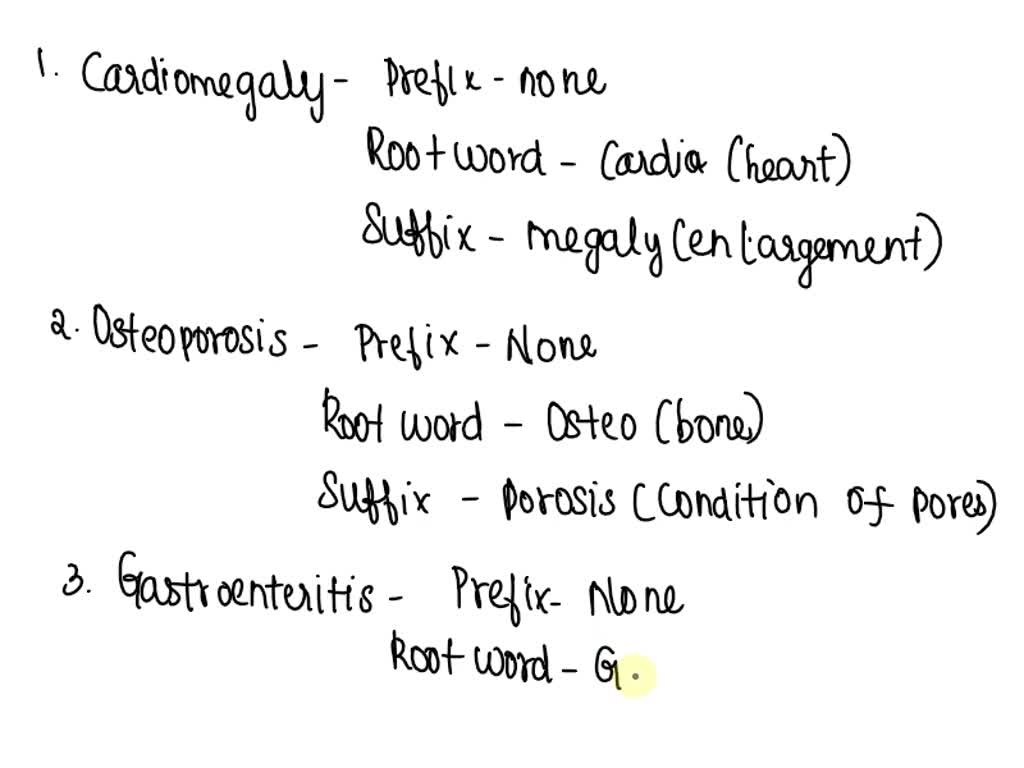 1. Cardiomegaly - Prefix - none
Root word - Cardia (heart)
Suffix - megaly (enlargement)
2. Osteoporosis - Prefix - None
Root word - Osteo (bone)
Suffix - Porosis (Condition of pores)
3. Gastroenteritis - Prefix - None
Root word - G